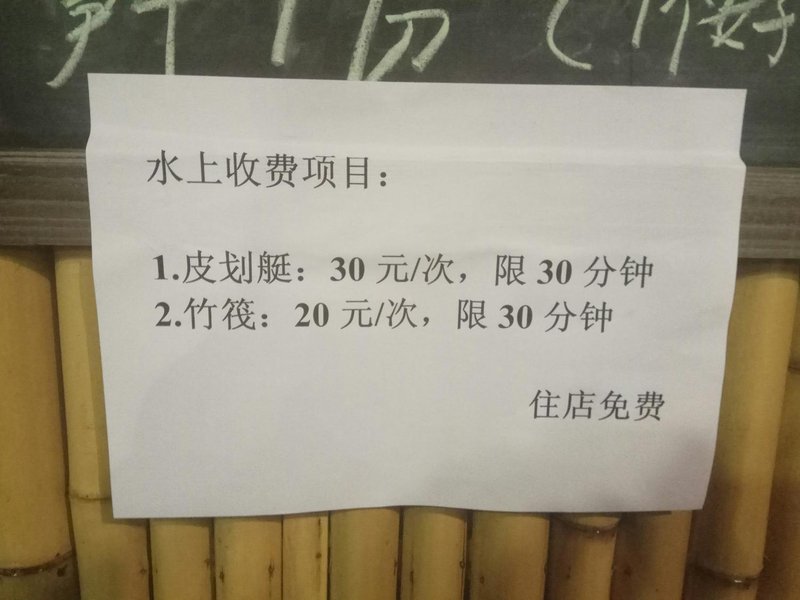 水上收费项目：
1.皮划艇：30 元/次，限 30 分钟
2.竹筏：20 元/次，限 30 分钟
住店免费